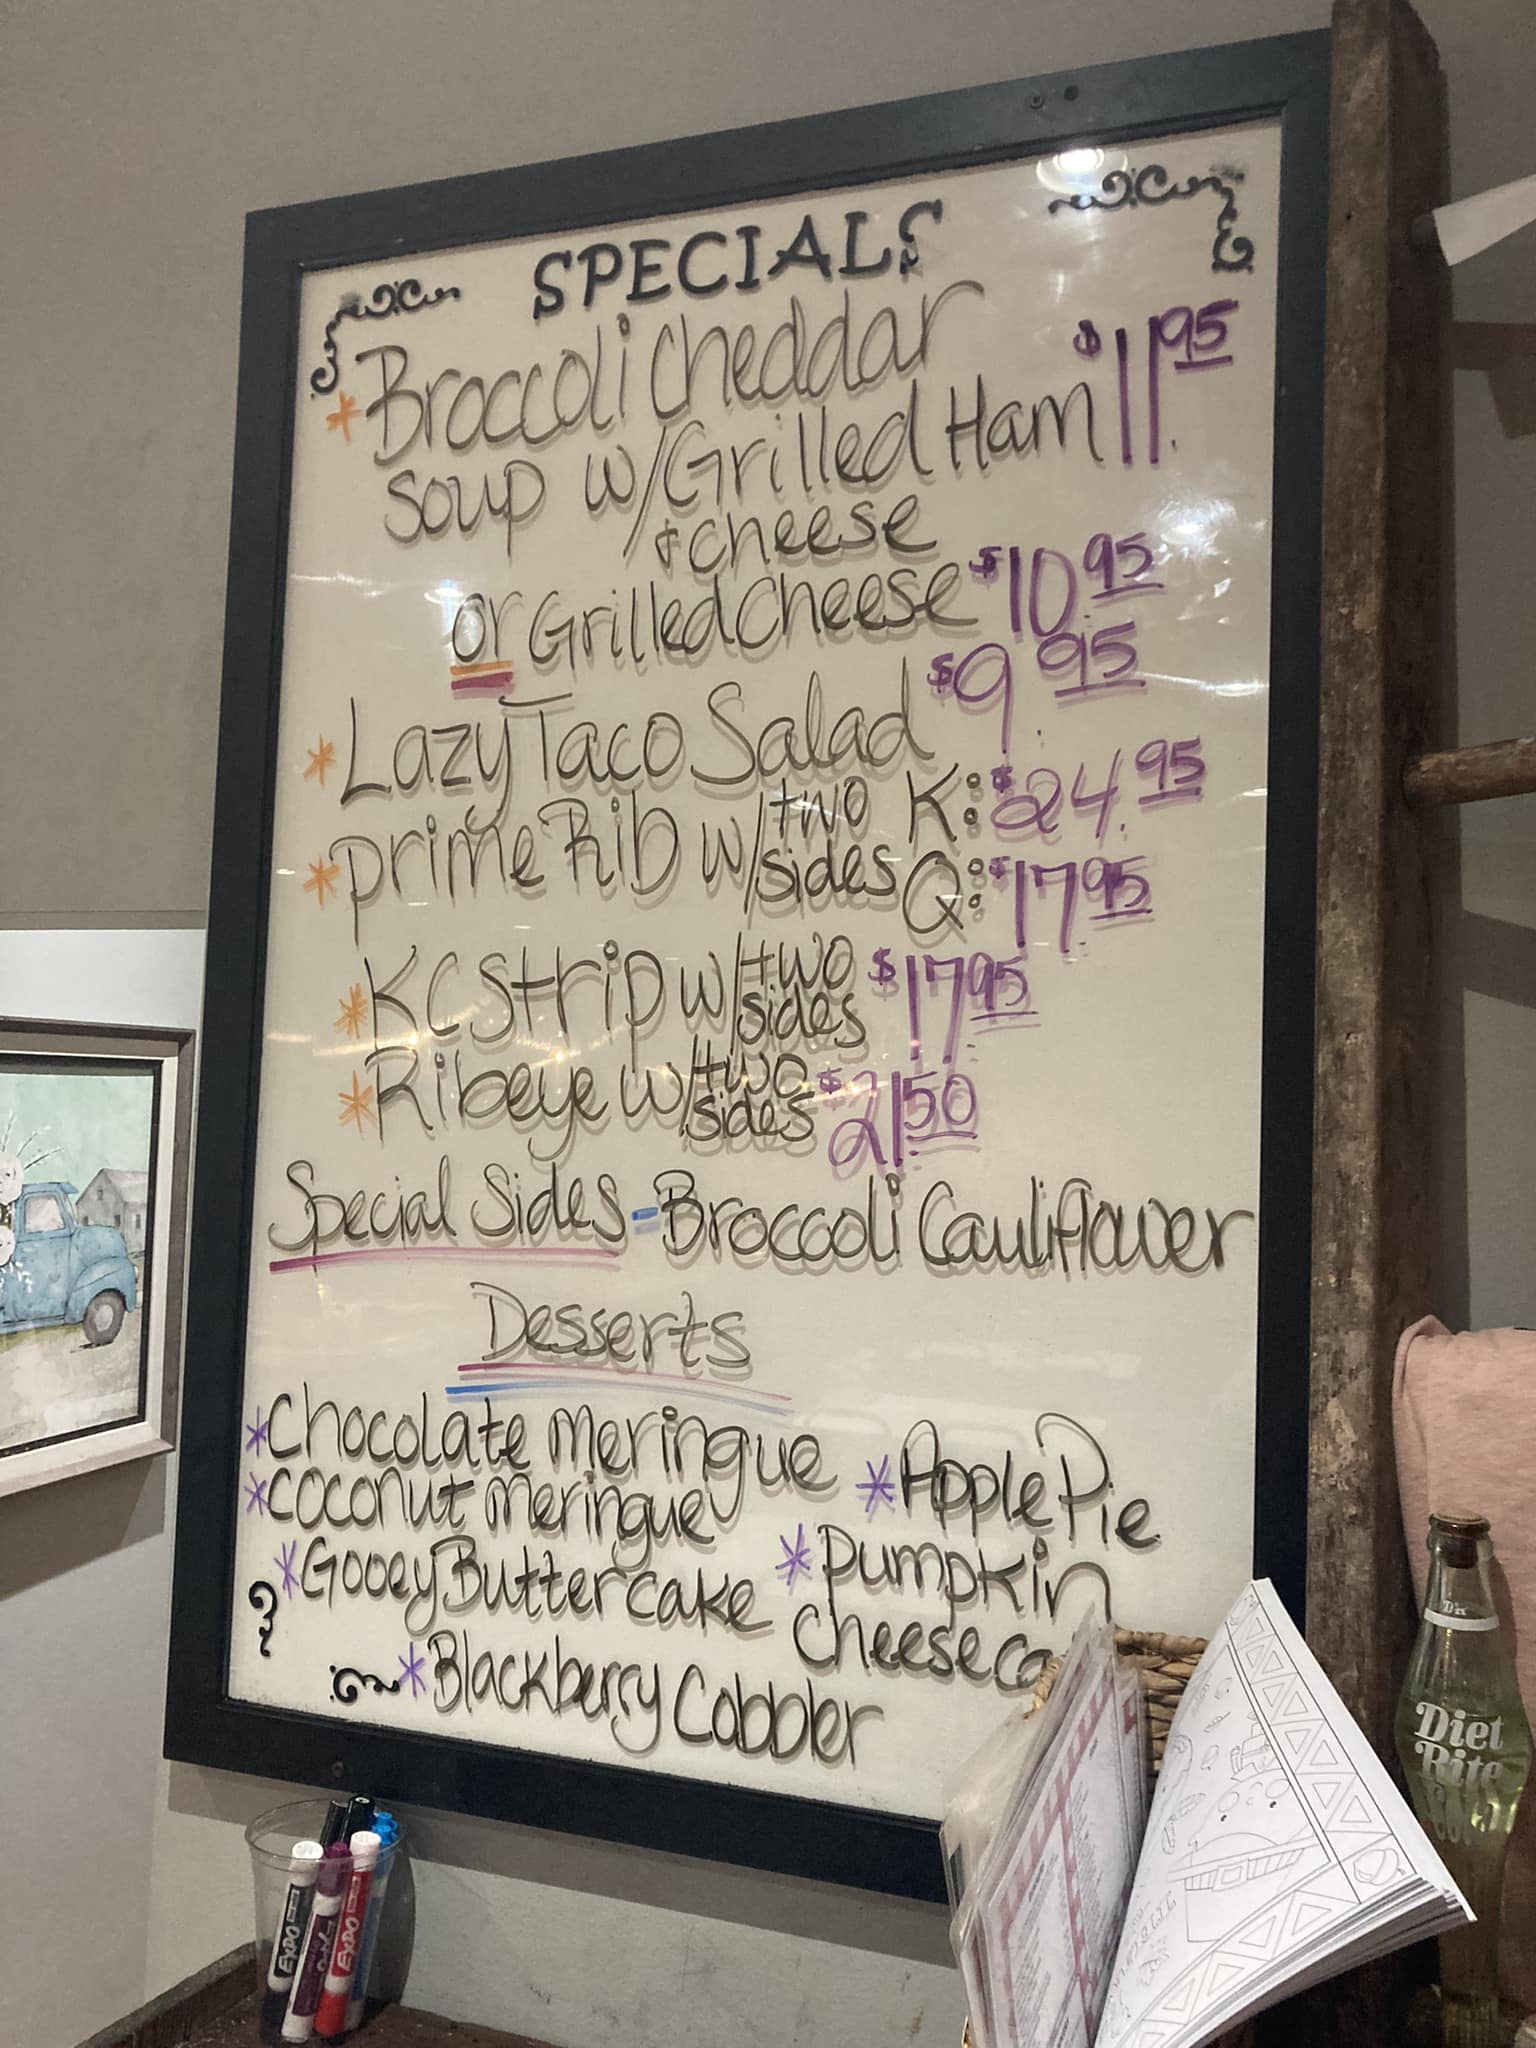 SPECIALS
* Broccoli Cheddar
Soup w/Grilled Ham $11.95
& cheese
or Grilled Cheese $10.95
* Lazy Taco Salad $9.95
* Prime Rib w/two sides K: $24.95
Q: $17.95
* KC Strip w/two sides $17.95
* Ribeye w/two sides $21.50
Special Sides - Broccoli Cauliflower
Desserts
* Chocolate Meringue
* Coconut Meringue
* Gooey Butter cake
* Blackberry Cobbler
* Apple Pie
* Pumpkin
Cheeseca
EXPO
EXPO
Diet
Rite